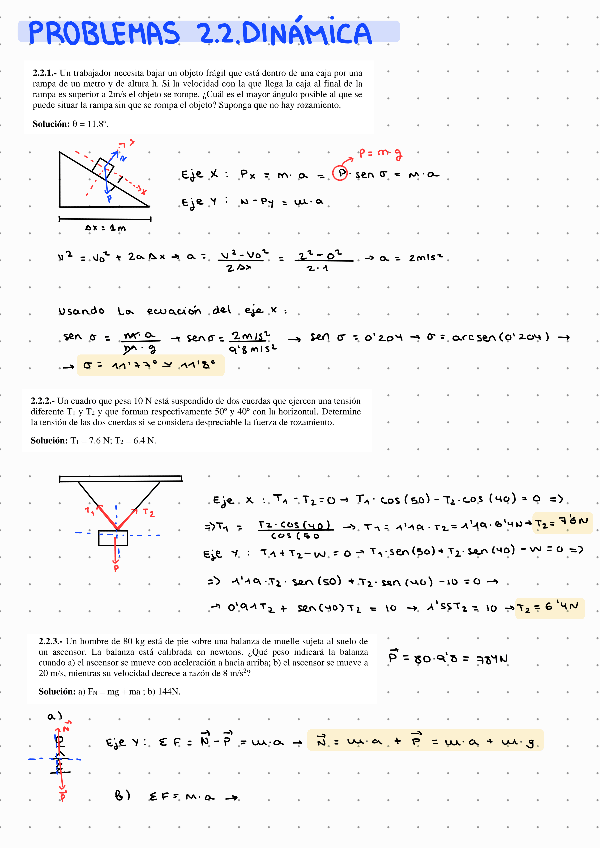 PROBLEMAS 2.2. DINÁMICA
2.2.1.- Un trabajador necesita bajar un objeto frágil que está dentro de una caja por una
rampa de un metro y de altura h. Si la velocidad con la que llega la caja al final de la
rampa es superior a 2m/s el objeto se rompe. ¿Cuál es el mayor ángulo posible al que se
puede situar la rampa sin que se rompa el objeto? Suponga que no hay rozamiento.
Solución: θ = 11.8º.
P = m·g
Eje X: Px = m·a = P·sen σ = m·a
Eje Y: N - Py = m·a
N
y
x
P
Δx = 1m
v² = v₀² + 2aΔx → a = (v² - v₀²) / (2Δx) = (2² - 0²) / (2·1) → a = 2m/s²
Usando la ecuación del eje x:
sen σ = (m·a) / (m·g) → sen σ = (2m/s²) / (9'8m/s²) → sen σ = 0'204 → σ = arcsen(0'204) →
→ σ = 11'77º ≃ 11'8º
2.2.2.- Un cuadro que pesa 10 N está suspendido de dos cuerdas que ejercen una tensión
diferente T₁ y T₂ y que forman respectivamente 50º y 40º con la horizontal. Determine
la tensión de las dos cuerdas si se considera despreciable la fuerza de rozamiento.
Solución: T₁ = 7.6 N; T₂ = 6.4 N.
T₁
T₂
P
Eje X: T₁ - T₂ = 0 → T₁·cos(50) - T₂·cos(40) = 0 =>
=> T₁ = (T₂·cos(40)) / (cos(50) → T₁ = 1'19·T₂ = 1'19·6'4N → T₂ = 7'6N
Eje Y: T₁ + T₂ - W = 0 → T₁·sen(50) + T₂·sen(40) - W = 0 =>
=> 1'19·T₂·sen(50) + T₂·sen(40) - 10 = 0 →
→ 0'91T₂ + sen(40)T₂ = 10 → 1'55T₂ = 10 → T₂ = 6'4N
2.2.3.- Un hombre de 80 kg está de pie sobre una balanza de muelle sujeta al suelo de
un ascensor. La balanza está calibrada en newtons. ¿Qué peso indicará la balanza
cuando a) el ascensor se mueve con aceleración a hacia arriba; b) el ascensor se mueve a
20 m/s, mientras su velocidad decrece a razón de 8 m/s²?
Solución: a) Fₙ = mg + ma ; b) 144N.
P = 80·9'8 = 784N
a)
N
P
Eje Y: ΣF = N - P = m·a → N = m·a + P = m·a + m·g
b) ΣF = m·a →